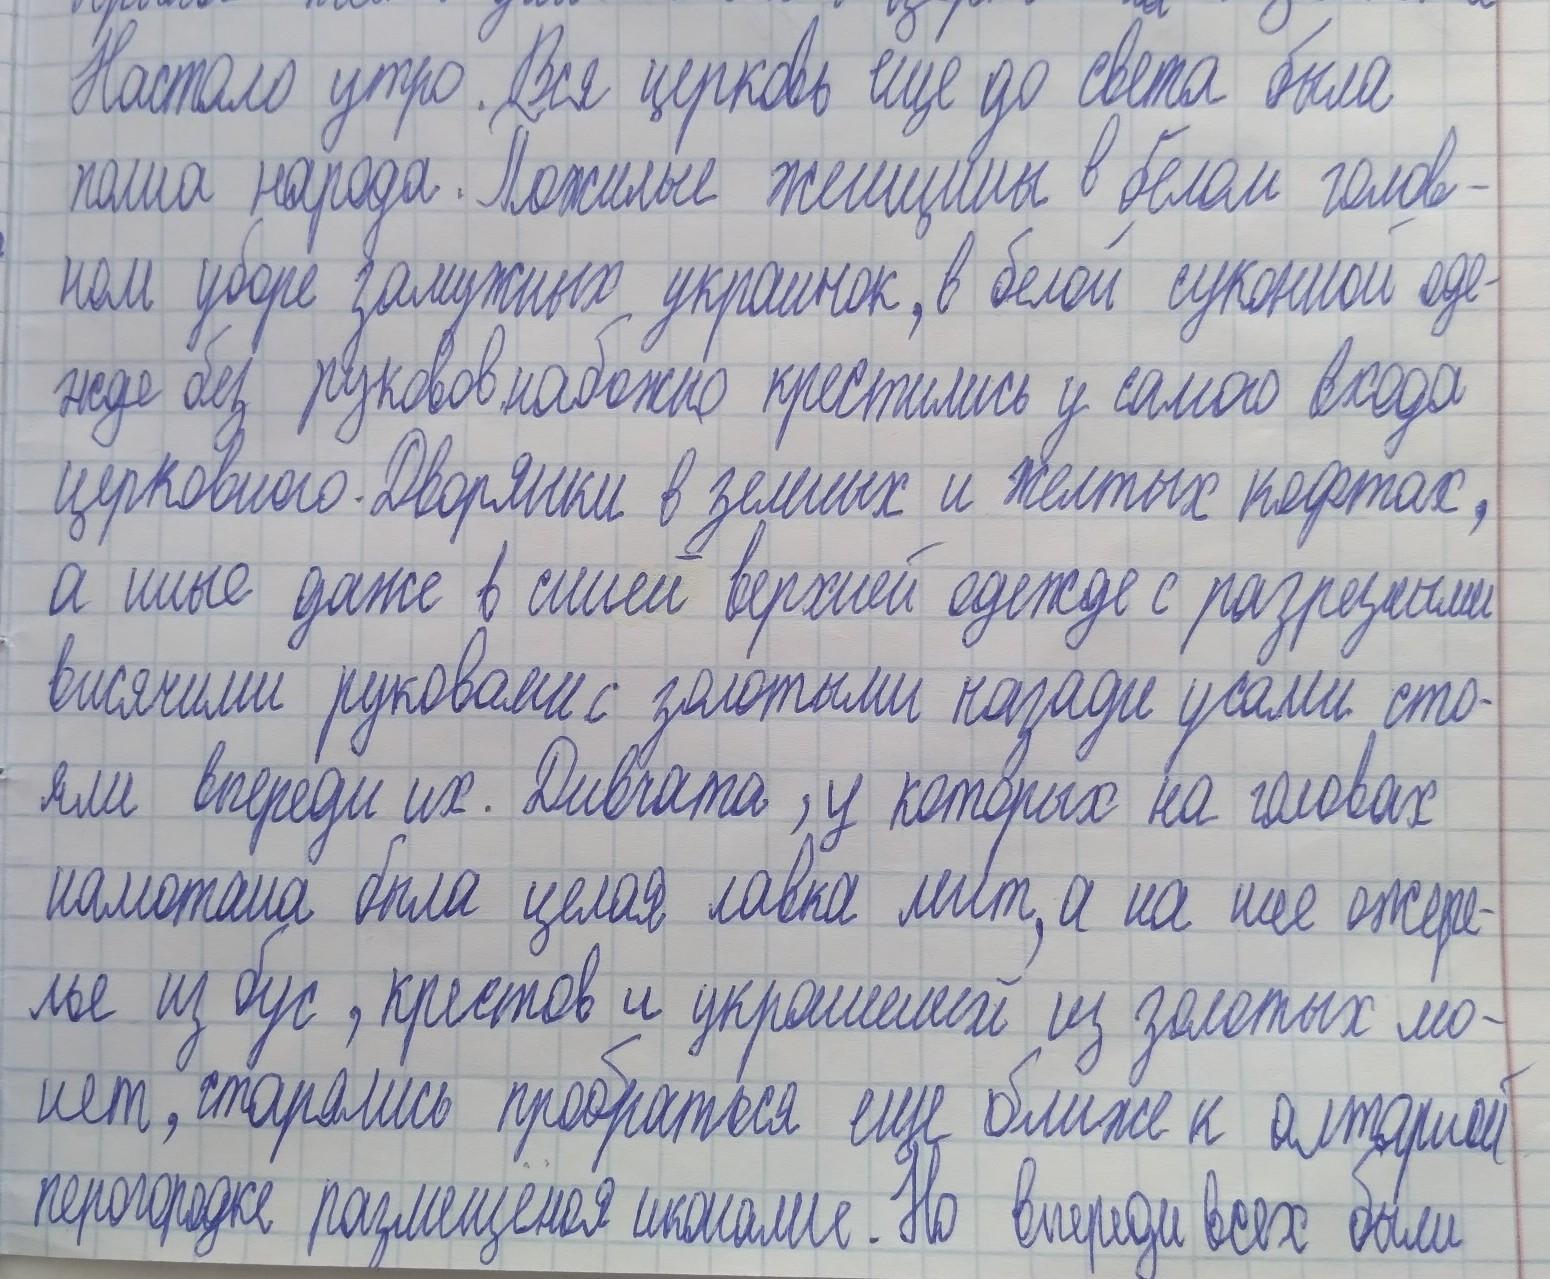 Настало утро. Вся церковь еще до света была
полна народа. Пожилые женщины в белом голов-
ном уборе замужных украинок, в белой суконной оде-
жде без руковов набожно крестились у самого входа
церковного. Дворянки в зеленых и желтых кофтах,
а иные даже в синей верхней одежде с разрезными
висячими руковами с золотыми назади усами сто-
яли впереди их. Дивчата, у которых на головах
намотана была целая лавка лент, а на шее ожере-
лье из бус, крестов и украшений из золотых мо-
нет, старались пробраться еще ближе к алтарной
перогородке размещеная иконами. Но впереди всех были